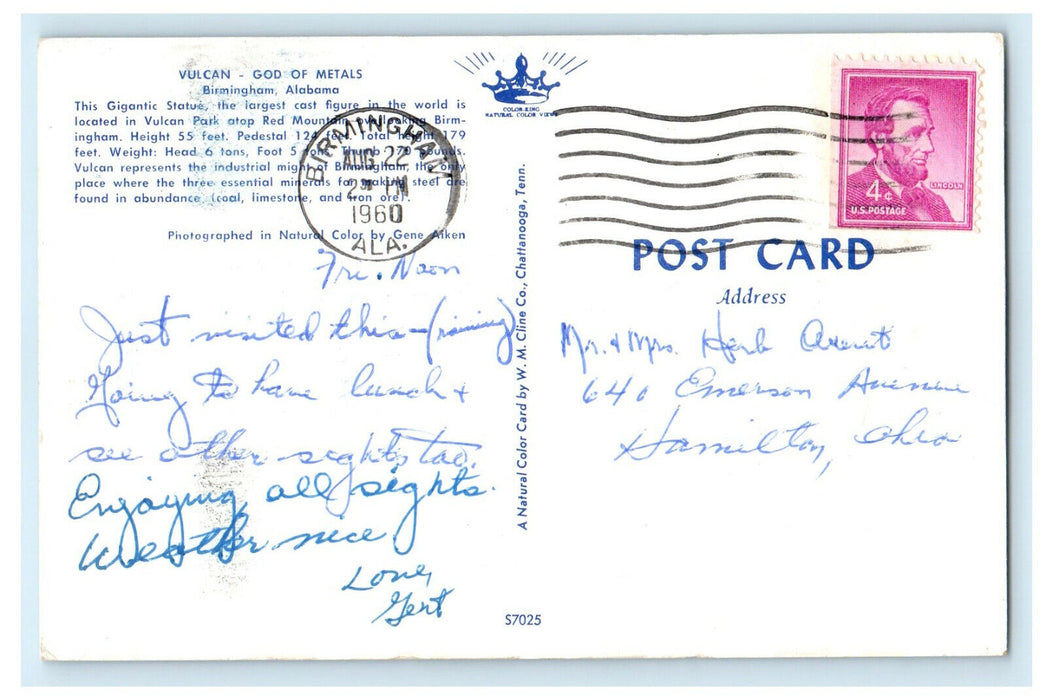 VULCAN - GOD OF METALS
Birmingham, Alabama
This Gigantic Statue, the largest cast figure in the world is
located in Vulcan Park atop Red Mountain overlooking Birm-
ingham. Height 55 feet. Pedestal 124 feet. Total height 179
feet. Weight: Head 6 tons, Foot 5 tons, Thumb 270 pounds.
Vulcan represents the industrial might of Birmingham, the only
place where the three essential minerals for making steel are
found in abundance (coal, limestone, and iron ore).
Photographed in Natural Color by Gene Aiken
Fri. Noon
Just visited this — (raining)
Going to have lunch +
see other sights too.
Enjoying all sights.
Weather nice
Love,
Gert
COLOR-KING
NATURAL COLOR VIEWS
BIRMINGHAM
AUG 22
1960
ALA.
A Natural Color Card by W. M. Cline Co., Chattanooga, Tenn.
S7025
LINCOLN
4¢
U.S. POSTAGE
POST CARD
Address
Mr. + Mrs. Herb
640 Emerson Avenue
Hamilton, Ohio